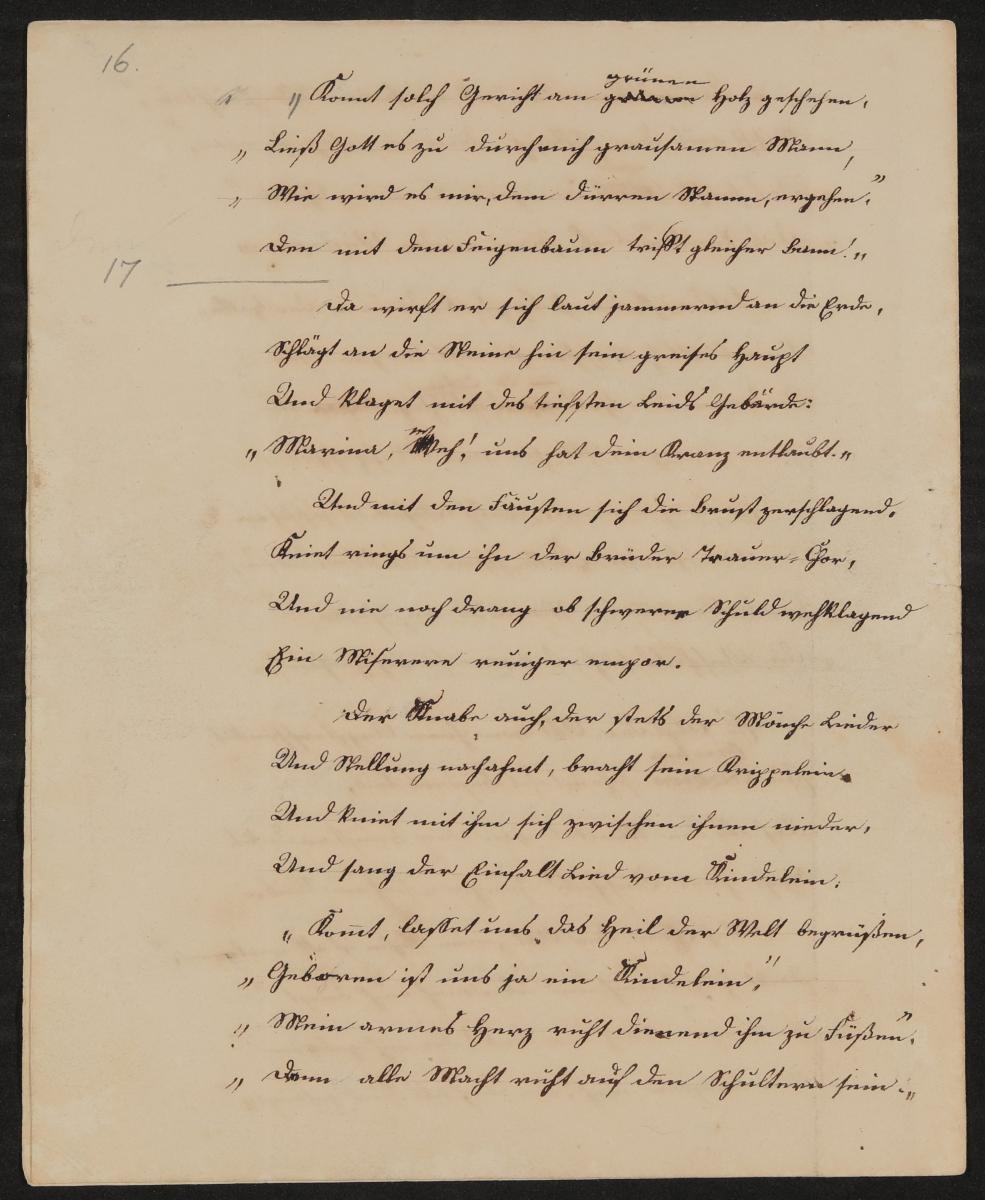 16.
grünen
„ Konnt solch Gericht am Holz geschehen,
„ Ließ Gott es zu durch mich grausamen Mann,
„ Wie wird es mir, dem dürren Stamm, ergehen,"
Den mit dem Feigenbaum trifft gleicher Bann!„
17
Da wirft er sich laut jammernd an die Erde,
Schlägt an die Steine hin sein greises Haupt
Und klaget mit des tiefsten Leids Gebärde:
„ Marina, Weh! uns hat dein Kranz entlaubt.„
Und mit den Fäusten sich die Brust zerschlagend,
Kniet rings um ihn der Brüder Trauer-Chor,
Und nie noch drang ob schwerer Schuld wehklagend
Ein Miserere reuiger empor.
Der Knabe auch, der stets der Mönche Lieder
Und Stellung nachahmt, bracht sein Krippelein.
Und kniet mit ihm sich zwischen ihnen nieder,
Und sang der Einfalt Lied vom Kindelein:
„ Kom̅t, lasset uns das Heil der Welt begrüßen,
„ Geboren ist uns ja ein Kindelein,"
„ Mein armes Herz ruht dienend ihm zu Füßen",
„ Denn alle Macht ruht auf den Schultern sein.„